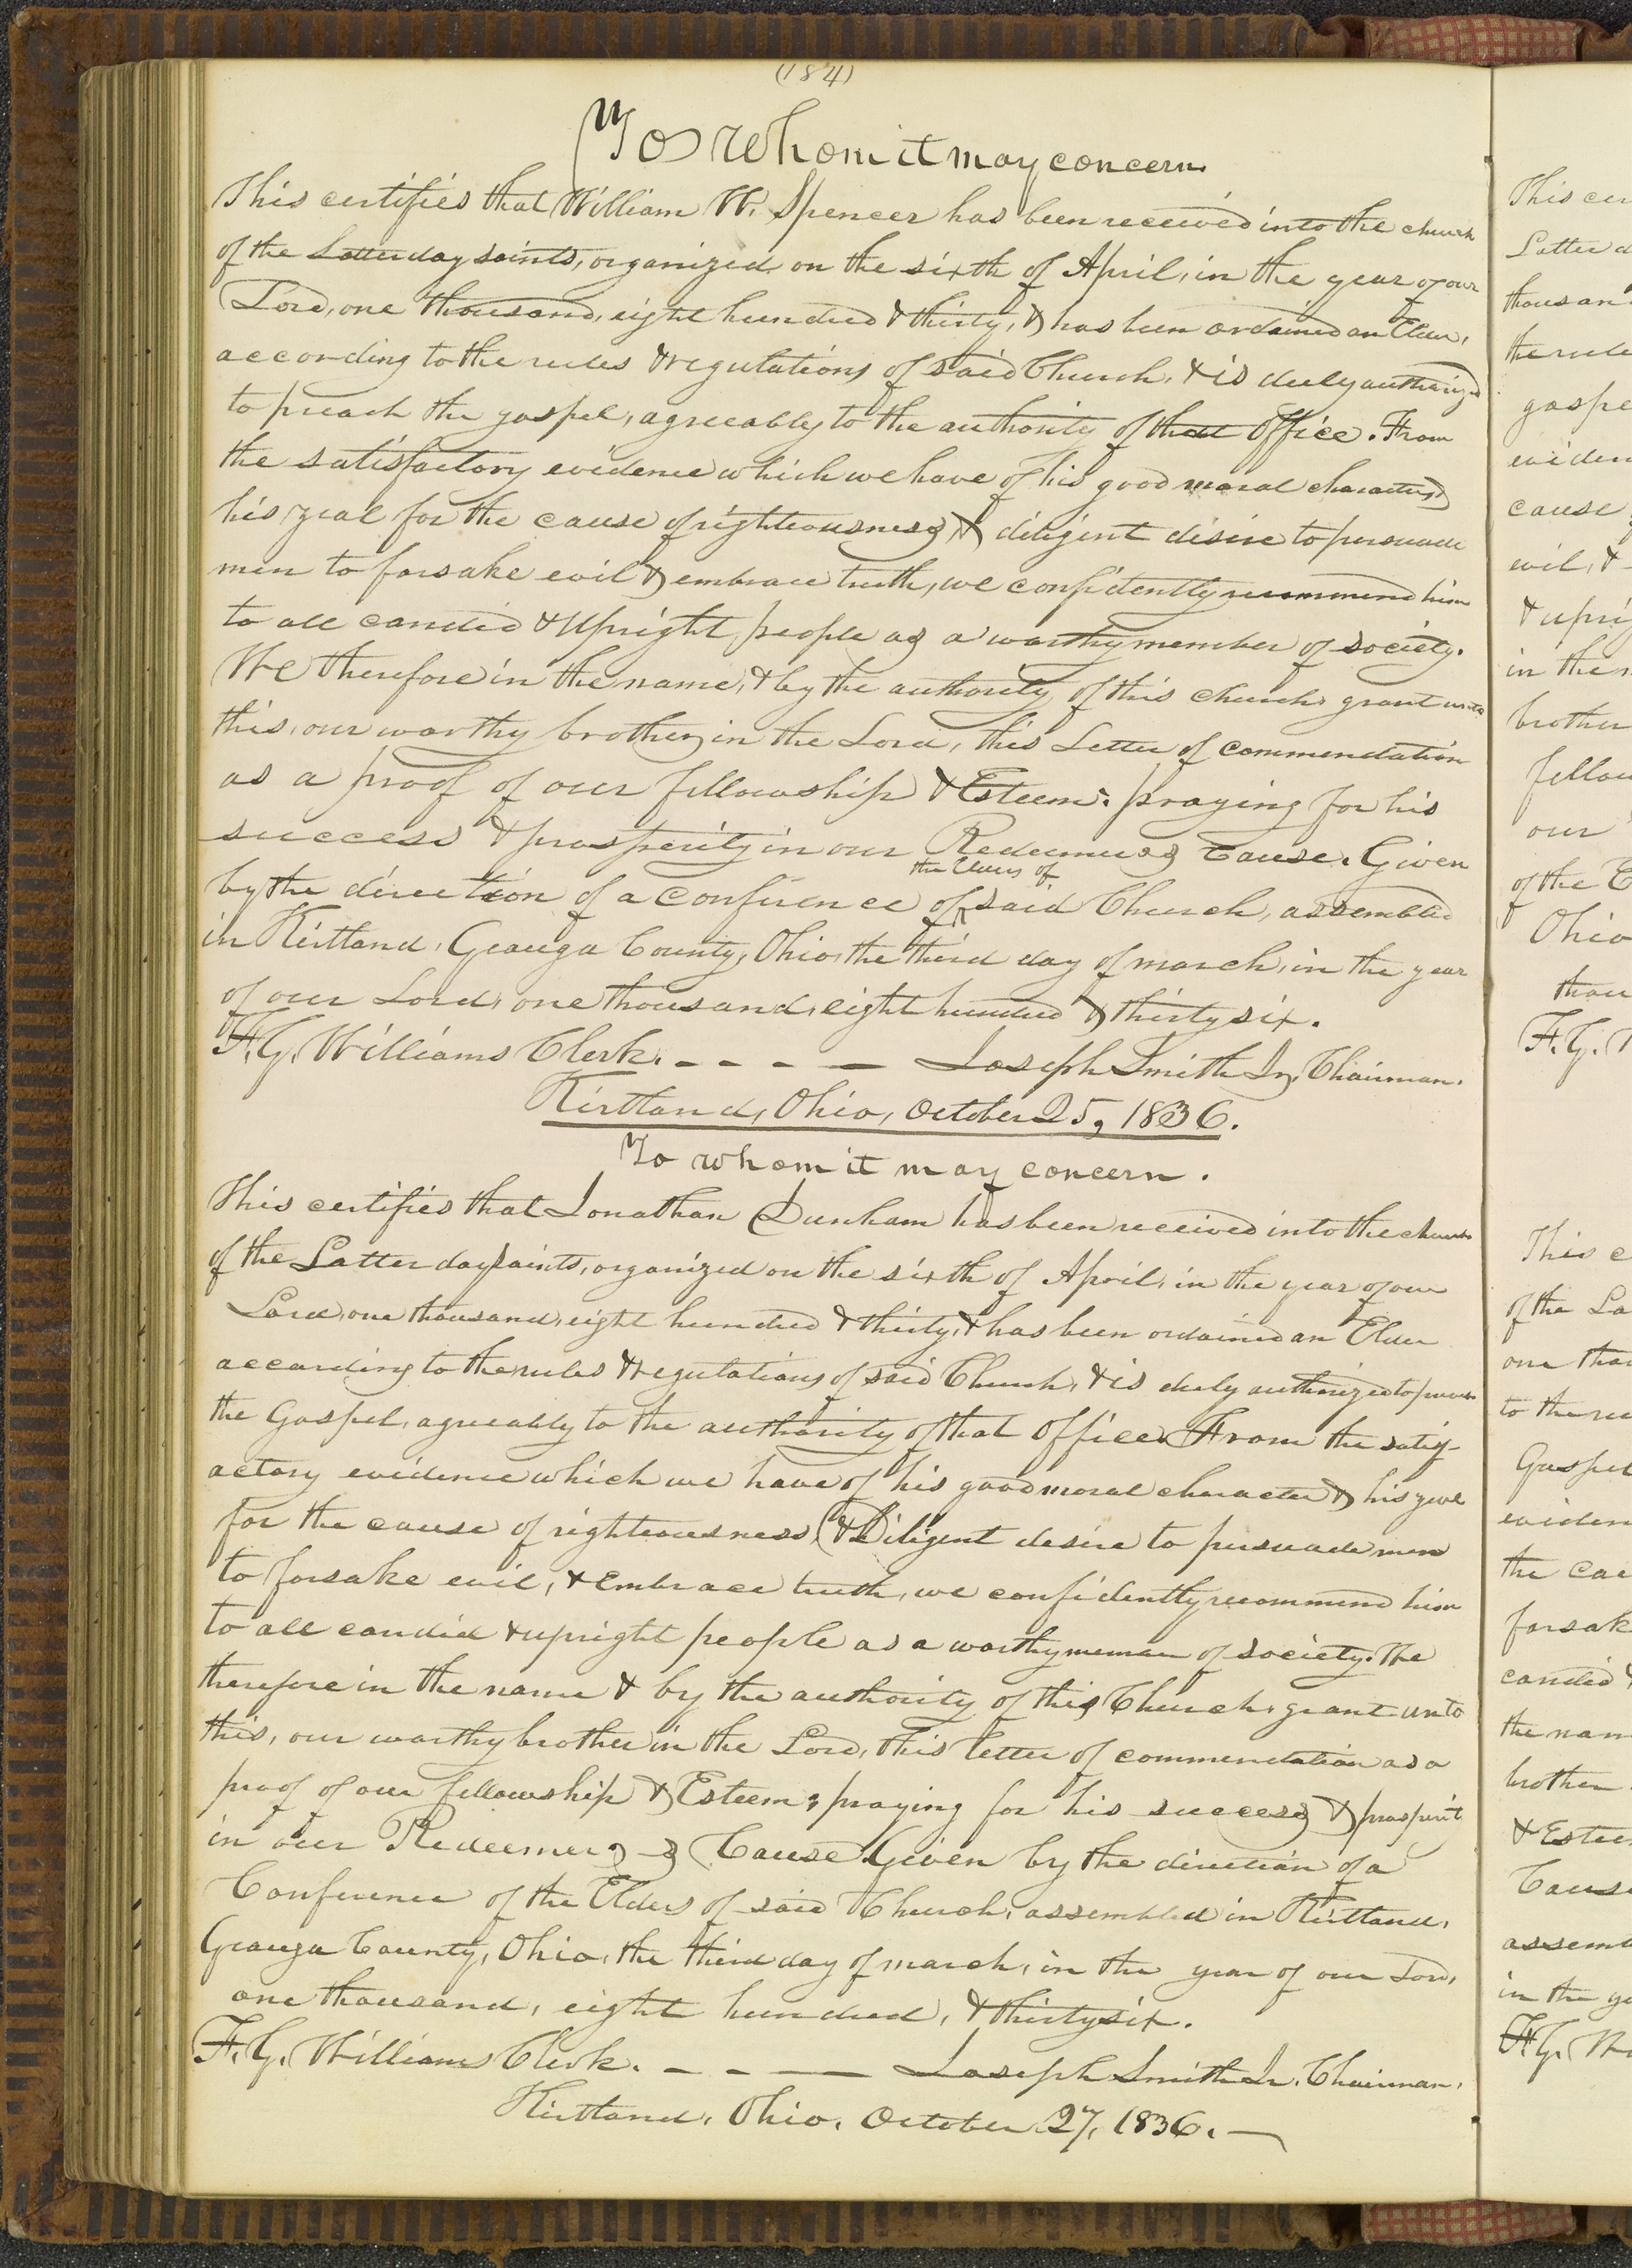 (184)
To Whom it may concern.
This certifies that William W. Spencer has been received into the church
of the Latter day saints, organized on the sixth of April, in the year of our
Lord, one thousand, eight hundred & thirty, & has been ordained an Elder,
according to the rules & regulations of said Church, & is duly authorized
to preach the gospel, agreeably to the authority of that Office. From
the satisfactory evidence which we have of his good moral character &
his zeal for the cause of righteousness, & diligent desire to persuade
men to forsake evil & embrace truth, we confidently recommend him
to all candid & Upright people as a worthy member of society.
We therefore in the name, & by the authority of this church, grant unto
this, our worthy brother, in the Lord, this Letter of commendation
as a proof of our fellowship & Esteem: praying for his
success & prosperity in our Redeemers Cause. Given
the Elders of
by the direction of a Conference of said Church, assembled
in Kirtland, Geauga County, Ohio, the third day of march, in the year
of our Lord, one thousand, eight hundred & thirty six.
F. G. Williams Clerk. - - - — Joseph Smith Jr, Chairman.
Kirtland, Ohio, October 25, 1836.
To whom it may concern.
This certifies that Jonathan Dunham has been received into the church
of the Latter day saints, organized on the sixth of April, in the year of our
Lord, one thousand, eight hundred & thirty, & has been ordained an Elder
according to the rules & regulations of said Church, & is duly authorized to preach
the Gospel, agreeably to the authority of that Office. From the satisf-
actory evidence which we have of his good moral character & his zeal
for the cause of righteousness, & Diligent desire to persuade men
to forsake evil, & Embrace truth, we confidently recommend him
to all candid & upright people as a worthy of society. We
therefore in the name & by the authority of this Church, grant unto
this, our worthy brother in the Lord, this letter of commendation as a
proof of our fellowship & Esteem; praying for his success & prosperit
in our Redeemers Cause. Given by the direction of a
Conference of the Elders of said Church, assembled in Kirtland,
Geauga County, Ohio, the third day of march, in the year of our Lord,
one thousand, eight hundred, & thirty six.
F. G. Williams Clerk. - - — Joseph Smith Jr. Chairman.
Kirtland, Ohio, October 27, 1836. —
This cer
Latter d
thousan
the rule
gospe
eviden
cause
evil, &
& upri
in the n
brother
fellow
our
of the E
Ohio
thou
F. G.
This c
of the La
one thou
to the ru
Gospel
eviden
the cau
forsak
candid &
the nam
brother
& Estee
Cause
assemb
in the ye
F. G. W